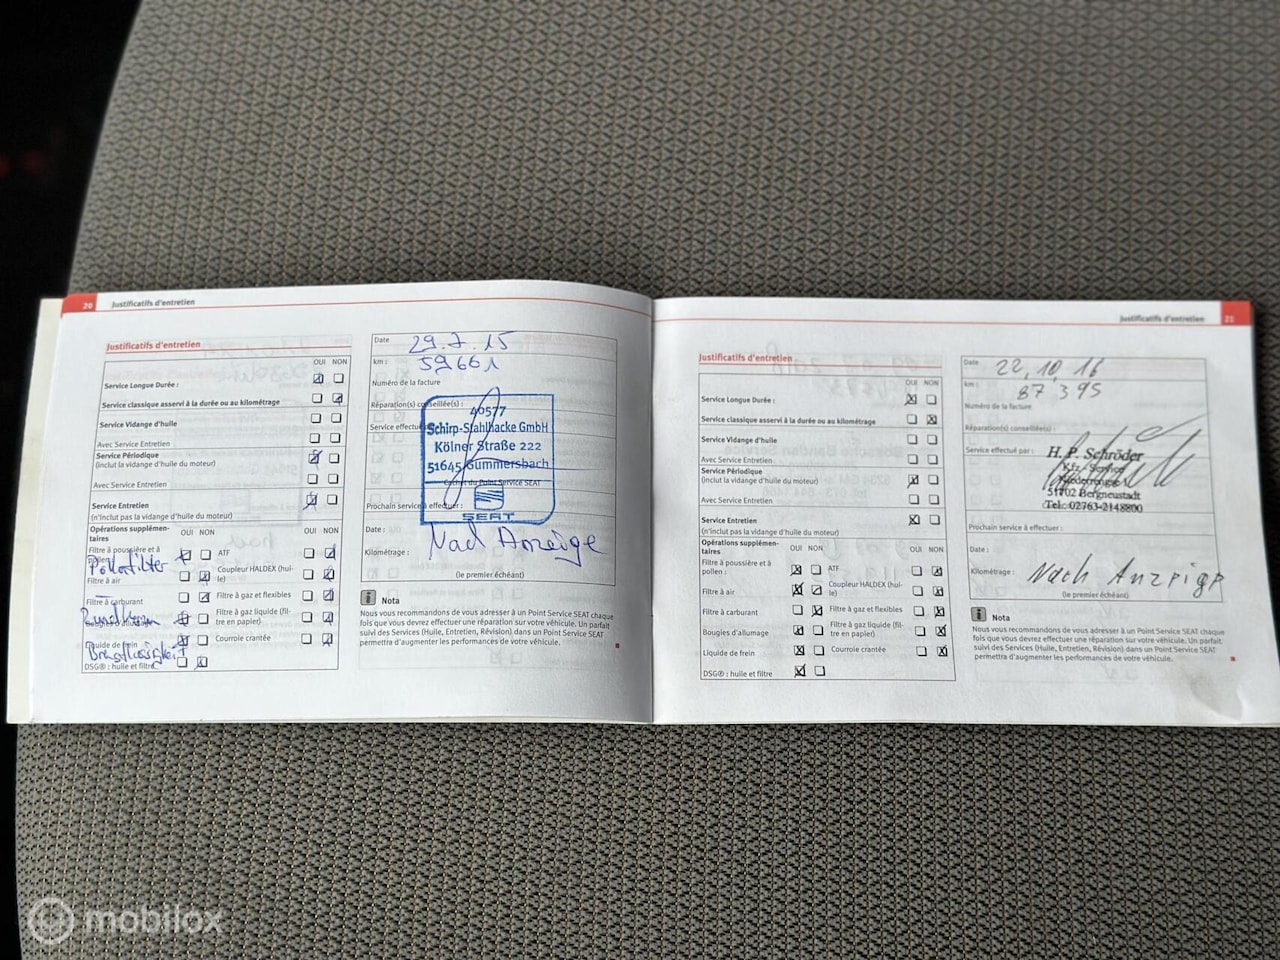 20 Justificatifs d'entretien
Justificatifs d'entretien
OUI NON
Service Longue Durée :
Service classique asservi à la durée ou au kilométrage
Service Vidange d'huile
Avec Service Entretien
Service Périodique
(inclut la vidange d'huile du moteur)
Avec Service Entretien
Service Entretien
(n'inclut pas la vidange d'huile du moteur)
Opérations supplémen-
taires
OUI NON
OUI NON
Filtre à poussière et à
pollen :
Pollenfilter
ATF
Filtre à air
Coupleur HALDEX (hui-
le)
Filtre à carburant
Filtre à gaz et flexibles
Zündkerzen
Filtre à gaz liquide (fil-
tre en papier)
Liquide de frein
Bremsflüssigkeit
Courroie crantée
DSG® : huile et filtre
Date
29.7.15
km :
59661
Numéro de la facture
Réparation(s) conseillée(s) :
Service effectué
40577
Schirp-Stahlhacke GmbH
Kölner Straße 222
51645 Gummersbach
Cachet du Point Service SEAT
SEAT
Prochain service à effectuer :
Date :
Kilométrage :
Nach Anzeige
(le premier échéant)
i Nota
Nous vous recommandons de vous adresser à un Point Service SEAT chaque
fois que vous devrez effectuer une réparation sur votre véhicule. Un parfait
suivi des Services (Huile, Entretien, Révision) dans un Point Service SEAT
permettra d'augmenter les performances de votre véhicule.
Justificatifs d'entretien 21
Justificatifs d'entretien
OUI NON
Service Longue Durée :
Service classique asservi à la durée ou au kilométrage
Service Vidange d'huile
Avec Service Entretien
Service Périodique
(inclut la vidange d'huile du moteur)
Avec Service Entretien
Service Entretien
(n'inclut pas la vidange d'huile du moteur)
Opérations supplémen-
taires
OUI NON
OUI NON
Filtre à poussière et à
pollen :
ATF
Filtre à air
Coupleur HALDEX (hui-
le)
Filtre à carburant
Filtre à gaz et flexibles
Bougies d'allumage
Filtre à gaz liquide (fil-
tre en papier)
Liquide de frein
Courroie crantée
DSG® : huile et filtre
Date
22.10.16
km :
87395
Numéro de la facture
Réparation(s) conseillée(s) :
Service effectué par :
H. P. Schröder
Kfz - Service
51702 Bergneustadt
Tel.: 02763-2148800
Prochain service à effectuer :
Date :
Kilométrage :
Nach Anzeige
(le premier échéant)
i Nota
Nous vous recommandons de vous adresser à un Point Service SEAT chaque
fois que vous devrez effectuer une réparation sur votre véhicule. Un parfait
suivi des Services (Huile, Entretien, Révision) dans un Point Service SEAT
permettra d'augmenter les performances de votre véhicule.
mobilox